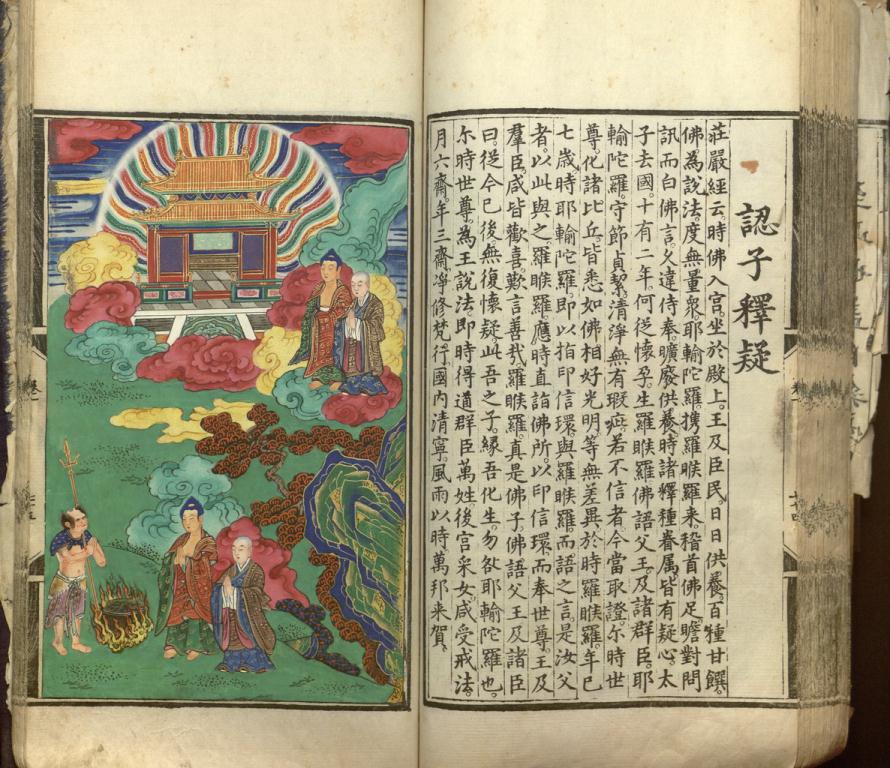 認子釋疑
莊嚴經云。時佛入宮。坐於殿上。王及臣民。日日供養。百種甘饌。
佛為說法。度無量衆。耶輸陀羅。携羅睺羅。来稽首佛足。瞻對問
訊。而白佛言。久違侍奉。曠廢供養。時諸釋種眷属。皆有疑心。太
子去國。十有二年。何從懷孕。生羅睺羅。佛語父王。及諸群臣。耶
輸陀羅。守節貞潔。清淨無有瑕疵。若不信者。今當取證。尓時世
尊。化諸比丘。皆悉如佛。相好光明。等無差異。於時羅睺羅。年已
七歲。時耶輸陀羅。即以指印信環。與羅睺羅。而語之言。是汝父
者。以此與之。羅睺羅。應時直詣佛所。以印信環。而奉世尊。王及
羣臣。咸皆歡喜。歎言善哉。羅睺羅。真是佛子。佛語父王。及諸臣
曰。從今已後。無復懷疑。此吾之子。緣吾化生。勿欲耶輸陀羅也。
尓時世尊。為王說法。即時得道。群臣萬姓。後宮采女。咸受戒法。
月六齋。年三齋。淨修梵行。國内清寧。風雨以時。萬邦来賀。